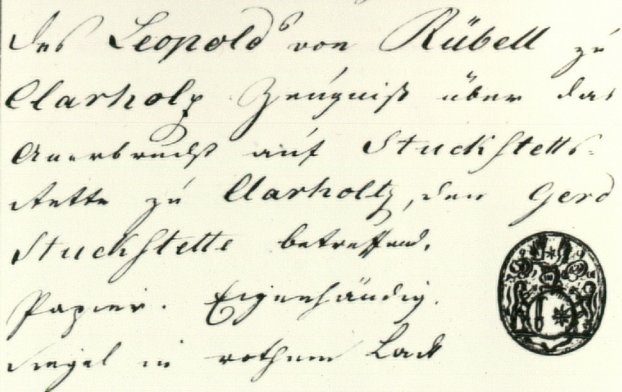 des Leopolds von Rübell zu
Clarholz Zeugniß über das
Anerbrecht auf Stuckstells-
stette zu Clarholtz, den Gerd
Stuckstette betreffend.
Papier. Eigenhändig.
Siegel in rothem Lack